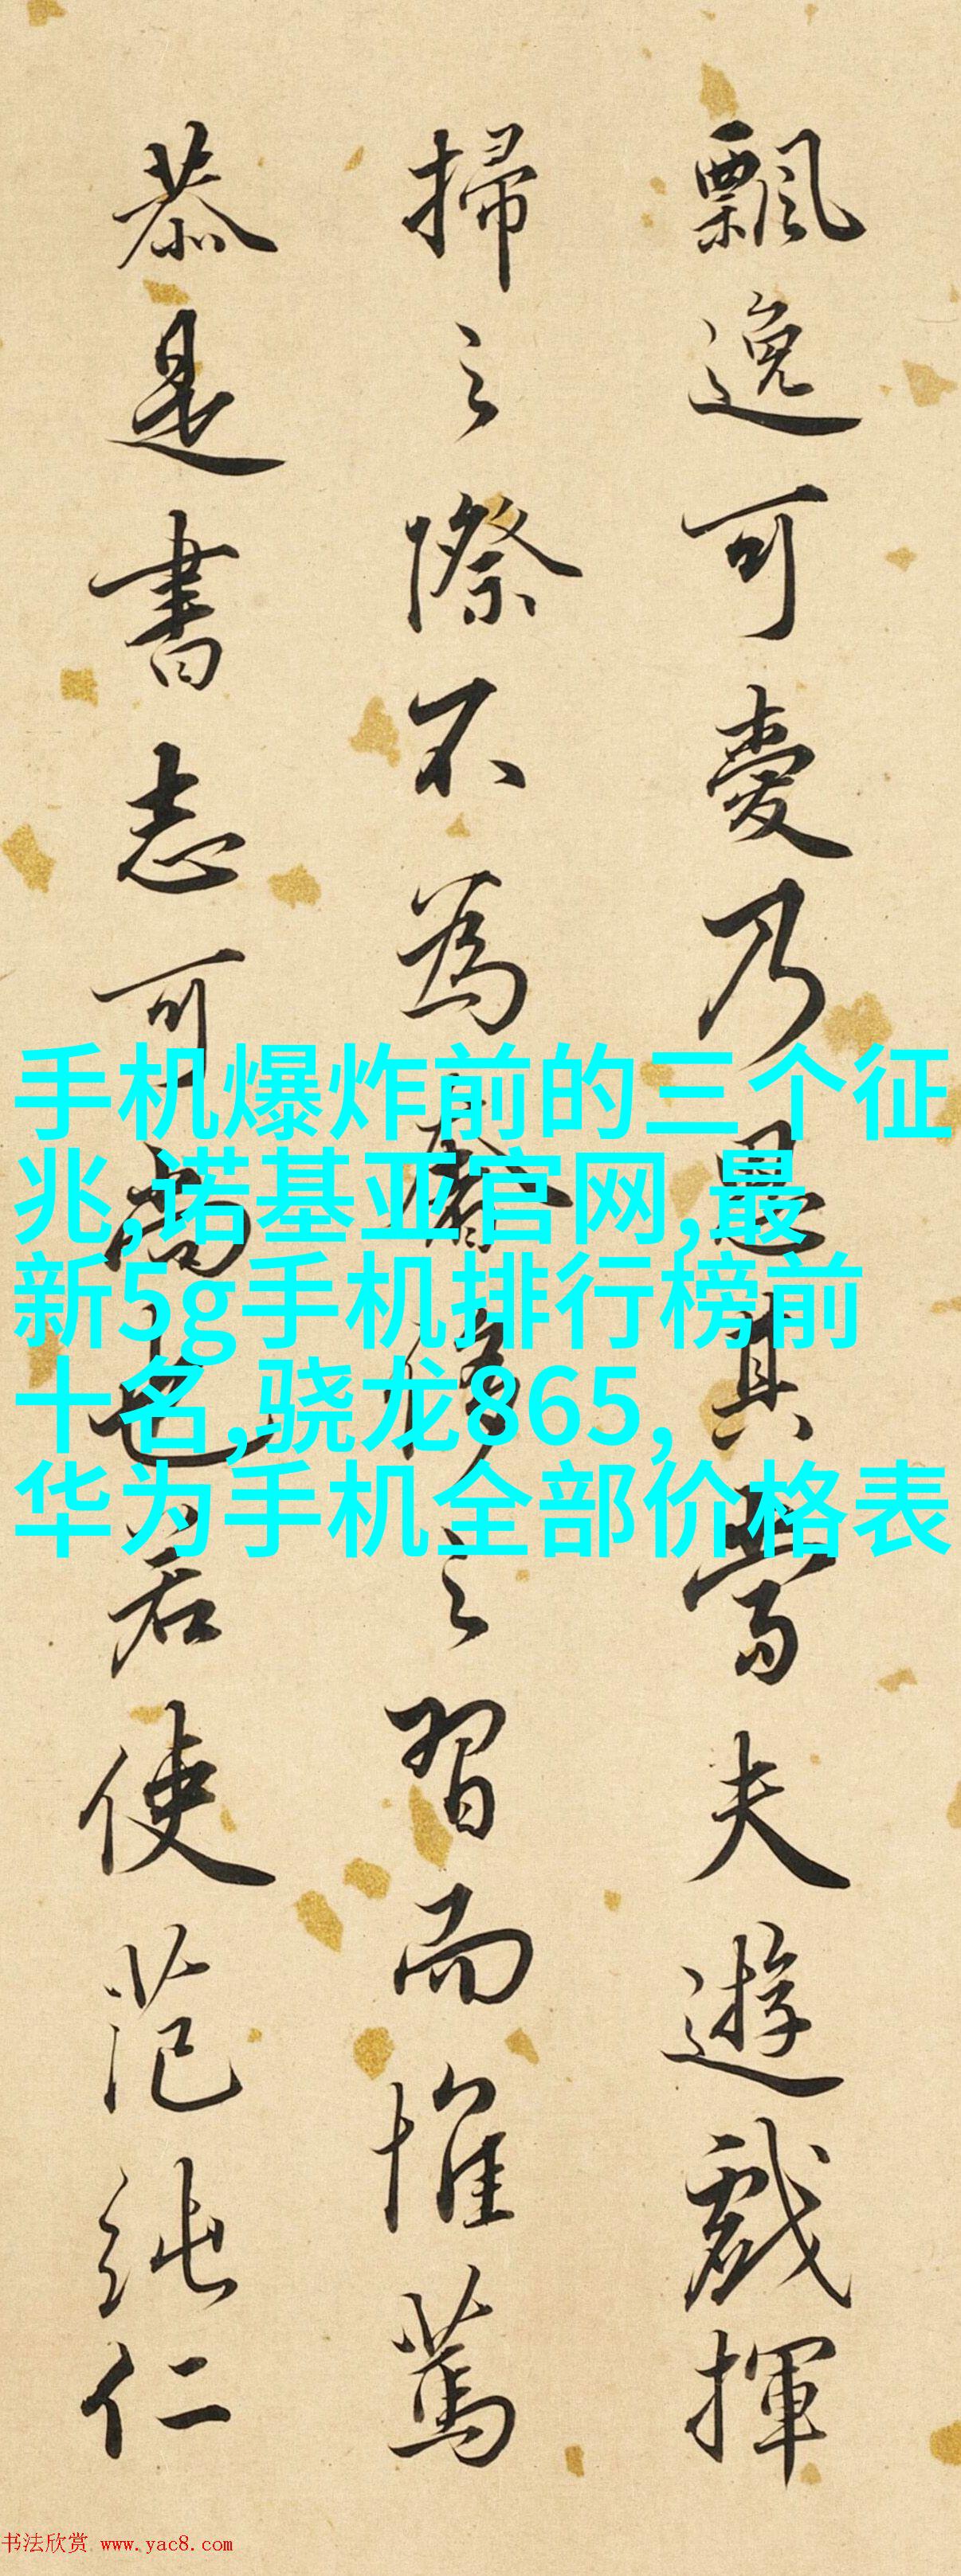 飄逸可愛乃是其常夫遊戲揮
掃之際不為奢侈之習而惟篤
恭是書志可尚也若使范純仁
手机爆炸前的三个征
兆,诺基亚官网,最
新5g手机排行榜前
十名,骁龙865,
华为手机全部价格表
书法欣赏 www.yac8.com